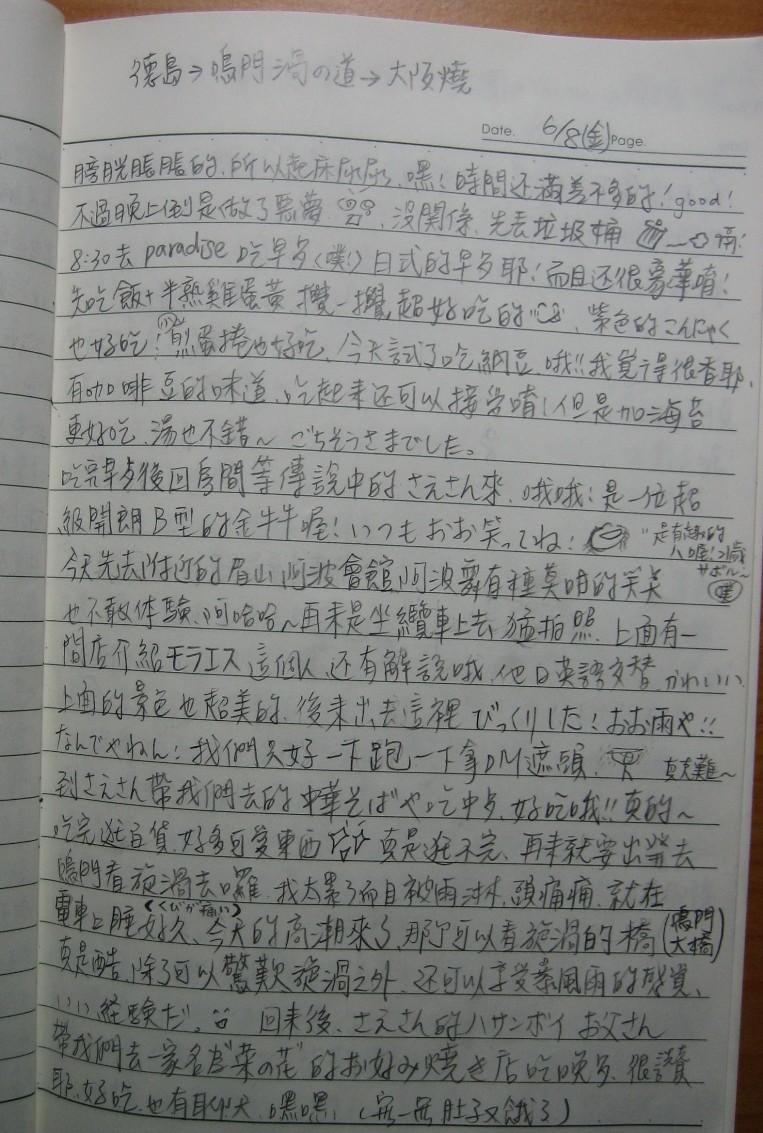 德島→鳴門渦の道→大阪燒
Date. 6/8(金) Page.
膀胱脹脹的,所以起床尿尿、嘿!時間还滿差不多的!good!
不過晚上倒是做了惡夢 , 沒關係,先丟垃圾桶 痛!
8:30去 paradise 吃早多(噗!)日式的早多耶!而且还很豪華唷!
先吃飯+半熟雞蛋黃,攪一攪,超好吃的 、紫色的こんにゃく
也好吃!煎蛋捲也好吃、今天試了吃納豆、哦!!我覺得很香耶、
有咖啡豆的味道、吃起来还可以接受唷!但是加海苔
更好吃、湯也不錯~ ごちそうさまでした。
吃完早点後回房間等傳說中的さえさん來、哦哦!是一位超
級開朗B型的金牛牛喔!いつもおお笑ってね!
"是有趣的
人喔!21歲
サボル~
今天先去附近的眉山,阿波會館,阿波
也不敢体験、阿哈哈~再来是坐纜車上去猛拍照、上面有一
間店介紹モラエス這個人、还有解說哦、他日英語交替、かわいい
上面的景色也超美的、後来出去這裡 びっくりした!おお雨や!!
なんでやねん!我們只好一下跑一下拿DM遮頭、 真夭難~
到さえさん帶我們去的中華そばや吃中点、好吃哦!!真的~
吃完逛百貨、好多可愛東西 真是逛不完、再来就要出發去
鳴門看旋渦去囉、我太累了而且被雨淋、頭痛痛、就在
電車上睡好久、(くびが痛い)今天的高潮來了、那可以看旋渦的橋(鳴門
大橋)
真是酷、除了可以驚歎旋渦之外、还可以享受暴風雨的感覺、
いい経験だ。 回来後、さえさん的ハサンボイ お父さん
帶我們去一家名為"菜の花"的お好み焼き店吃晚多、很讚
耶、好吃、也有聊天、嘿嘿、(